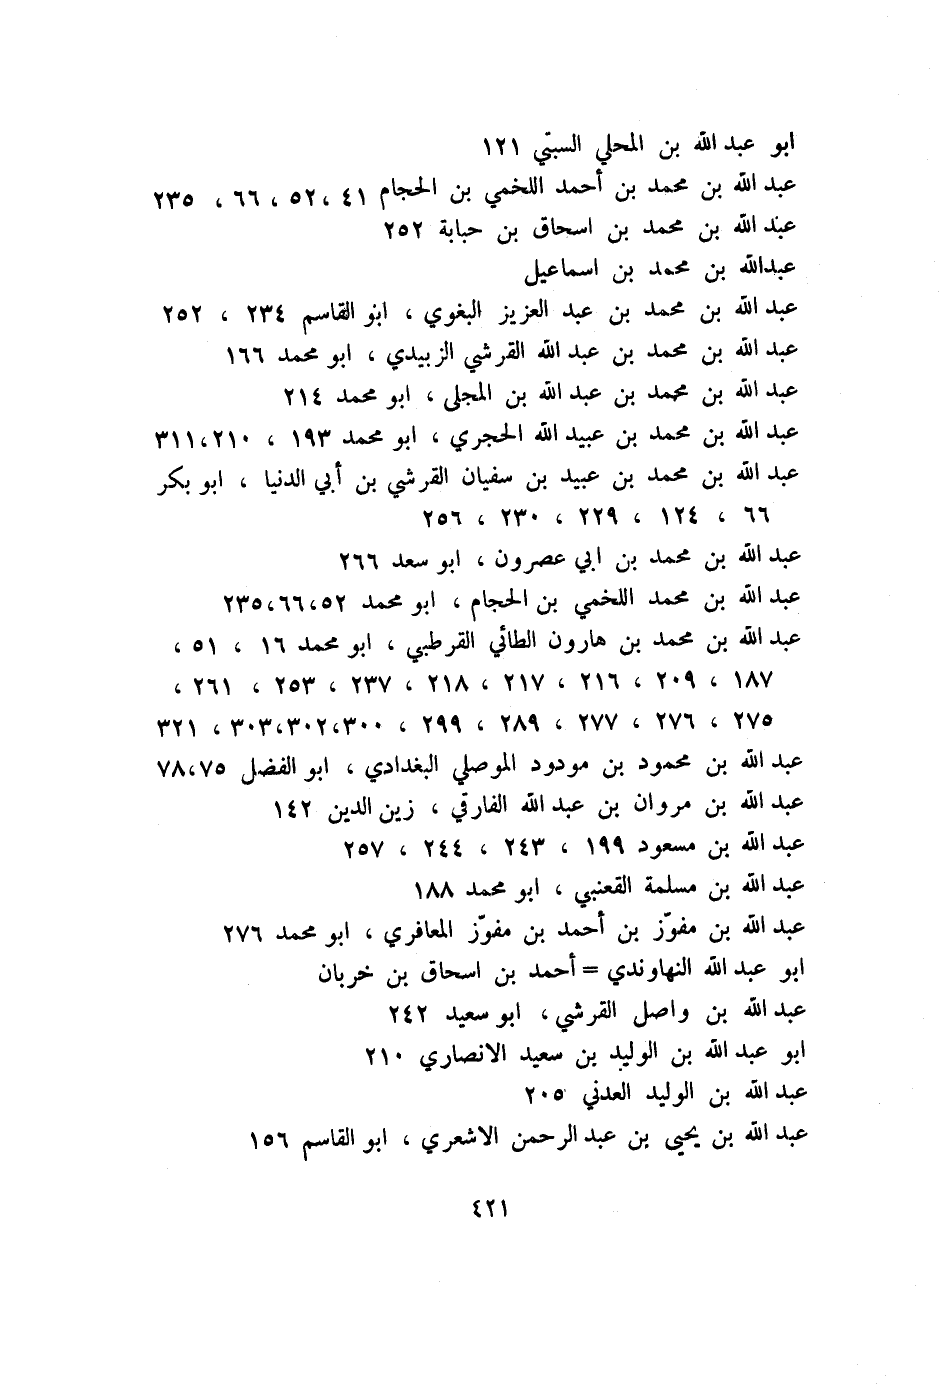 ابو عبد الله بن المحلي السبتي ١٢١
عبد الله بن محمد بن أحمد اللخمي بن الحجام ٤١ ،٥٢ ، ٦٦ ، ٢٣٥
عبد الله بن محمد بن اسحاق بن حبابة ٢٥٢
عبدالله بن محمد بن اسماعيل
عبد الله بن محمد بن عبد العزيز البغوي ، ابو القاسم ٢٣٤ ، ٢٥٢
عبد الله بن محمد بن عبد الله القرشي الزبيدي ، ابو محمد ١٦٦
عبد الله بن محمد بن عبد الله بن المجلي ، ابو محمد ٢١٤
عبد الله بن محمد بن عبيد الله الحجري ، ابو محمد ١٩٣ ، ٢١٠،٣١١
عبد الله بن محمد بن عبيد بن سفيان القرشي بن أبي الدنيا ، ابو بكر
٦٦ ، ١٢٤ ، ٢٢٩ ، ٢٣٠ ، ٢٥٦
عبد الله بن محمد بن ابي عصرون ، ابو سعد ٢٦٦
عبد الله بن محمد اللخمي بن الحجام ، ابو محمد ٥٢،٦٦،٢٣٥
عبد الله بن محمد بن هارون الطائي القرطبي ، ابو محمد ١٦ ، ٥١ ،
١٨٧ ، ٢٠٩ ، ٢١٦ ، ٢١٧ ، ٢١٨ ، ٢٣٧ ، ٢٥٣ ، ٢٦١ ،
٢٧٥ ، ٢٧٦ ، ٢٧٧ ، ٢٨٩ ، ٢٩٩ ، ٣٠٠،٣٠٢،٣٠٣ ، ٣٢١
عبد الله بن محمود بن مودود الموصلي البغدادي ، ابو الفضل ٧٥،٧٨
عبد الله بن مروان بن عبد الله الفارقي ، زين الدين ١٤٢
عبد الله بن مسعود ١٩٩ ، ٢٤٣ ، ٢٤٤ ، ٢٥٧
عبد الله بن مسلمة القعنبي ، ابو محمد ١٨٨
عبد الله بن مفوّز بن أحمد بن مفوّز المعافري ، ابو محمد ٢٧٦
ابو عبد الله النهاوندي = أحمد بن اسحاق بن خربان
عبد الله بن واصل القرشي ، ابو سعيد ٢٤٢
ابو عبد الله بن الوليد بن سعيد الانصاري ٢١٠
عبد الله بن الوليد العدني ٢٠٥
عبد الله بن يحيى بن عبد الرحمن الاشعري ، ابو القاسم ١٥٦
٤٢١